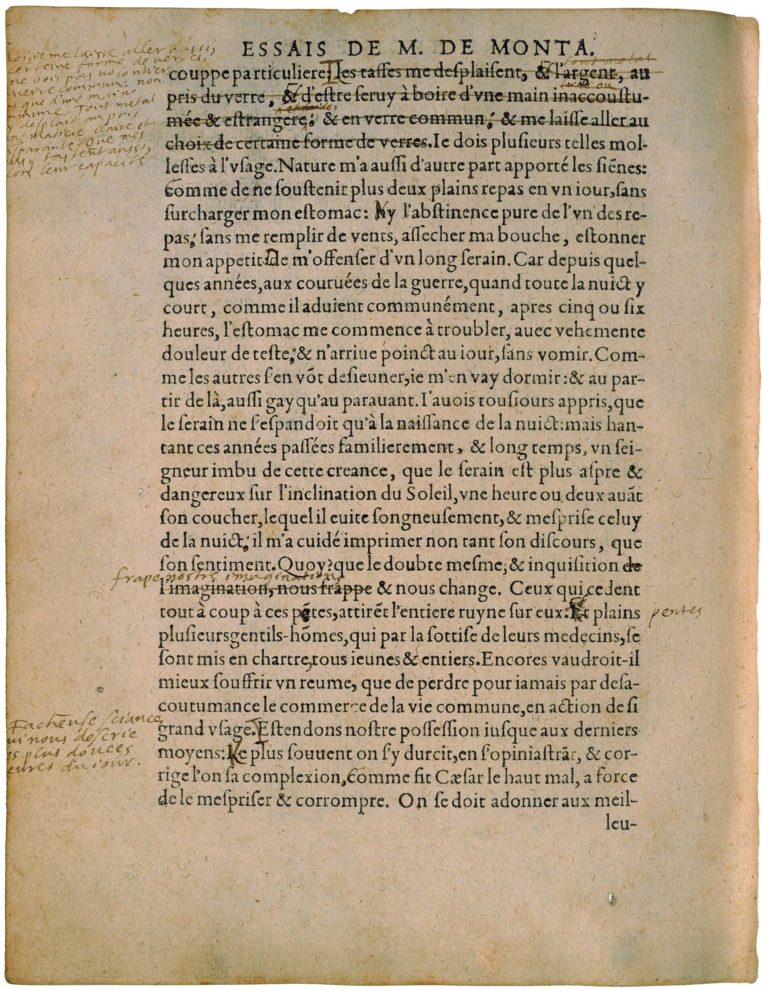 ESSAIS DE M. DE MONTA.
couppe particuliere: les tasses me desplaisent, & l'argent, au
pris du verre, & d'estre seruy à boire d'vne main inaccoustu-
mée & estrangere, & en verre commun, & me laisse aller au
choix de certaine forme de verres. Ie dois plusieurs telles mol-
lesses à l'vsage. Nature m'a aussi d'autre part apporté les siẽnes:
Comme de ne soustenir plus deux plains repas en vn iour, sans
surcharger mon estomac: Ny l'abstinence pure de l'vn des re-
pas, sans me remplir de vents, assecher ma bouche, estonner
mon appetit: De m'offenser d'vn long serain. Car depuis quel-
ques années, aux couruées de la guerre, quand toute la nuict y
court, comme il aduient communément, apres cinq ou six
heures, l'estomac me commence à troubler, auec vehemente
douleur de teste, & n'arriue poinct au iour, sans vomir. Com-
me les autres s'en võt desieuner, ie m'en vay dormir: & au par-
tir de là, aussi gay qu'au parauant. I'auois tousiours appris, que
le serain ne s'espandoit qu'à la naissance de la nuict: mais han-
tant ces années passées familierement, & long temps, vn sei-
gneur imbu de cette creance, que le serain est plus aspre &
dangereux sur l'inclination du Soleil, vne heure ou deux auãt
son coucher, lequel il euite songneusement, & mesprise celuy
de la nuict, il m'a cuidé imprimer non tant son discours, que
son sentiment. Quoy? que le doubte mesme, & inquisition de
frape nostre imagination
l'imagination, nous frappe & nous change. Ceux qui cedent
tout à coup à ces pẽtes, attirẽt l'entiere ruyne sur eux: Et plains
pentes
plusieurs gentils-hõmes, qui par la sottise de leurs medecins, se
sont mis en chartre, tous ieunes & entiers. Encores vaudroit-il
mieux souffrir vn reume, que de perdre pour iamais par desa-
coutumance le commerce de la vie commune, en action de si
grand vsage. Estendons nostre possession iusque aux derniers
Facheuse sciance
ui nous descrie
es plus douces
eures du iour.
moyens: Le plus souuent on s'y durcit, en s'opiniastrãt, & cor-
rige l'on sa complexion, Comme fit Cæsar le haut mal, a force
de le mespriser & corrompre. On se doit adonner aux meil-
leu-